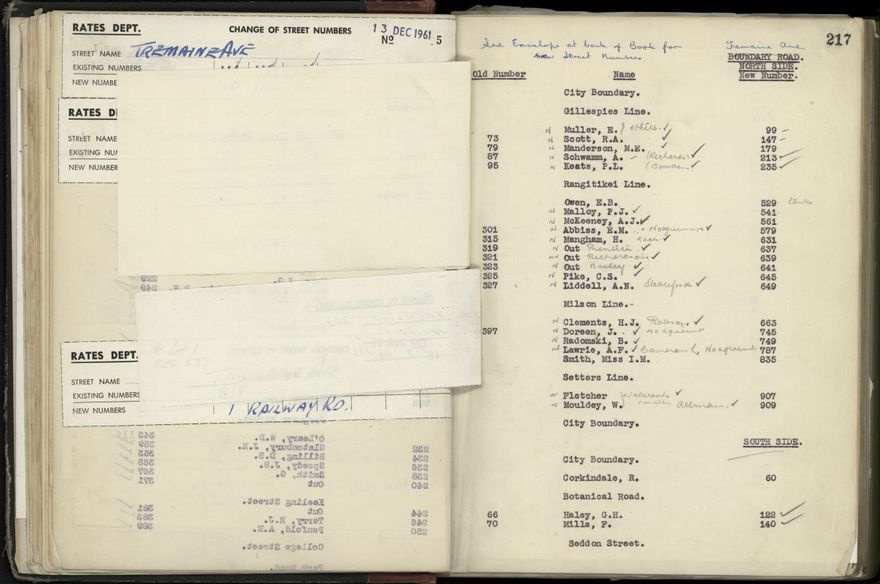 RATES DEPT.
CHANGE OF STREET NUMBERS
13 DEC 1961
No 5
STREET NAME TREMAINE AVE
EXISTING NUMBERS
NEW NUMBE
RATES D
STREET NAME
EXISTING NU
NEW NUMBER
RATES DEPT.
STREET NAME
EXISTING NUMBERS
NEW NUMBERS 1 RAILWAY RD.
O'Leary, W.D. 343
232 Glastonbury, J.E. 359
234 Billing, D.B. 363
236 Speedy, J.B. 367
238 Smith, G. 371
240 Out
Keeling Street.
244 Out 381
246 Terry, H.J. 383
250 Penfold, A.E. 389
College Street.
Park Road.
217
See Envelope at back of Book for Tremaine Ave
new Street Numbers.
BOUNDARY ROAD.
NORTH SIDE.
Old Number Name New Number.
City Boundary.
Gillespies Line.
Muller, E. White. 99
73 Scott, R.A. 147
79 Manderson, M.E. 179
87 Schwamm, A. 213
95 Keats, P.L. 235
Rangitikei Line.
Owen, E.B. 529
Malloy, P.J. 541
McKeeney, A.J. 561
301 Abbiss, E.M. 579
315 Mangham, H. 631
319 Out 637
321 Out Richardson 639
323 Out 641
325 Pike, C.S. 645
327 Liddell, A.N. 649
Milson Line.
Clements, H.J. 663
397 Doreen, J. 745
Radomski, B. 749
Lawrie, A.F. 787
Smith, Miss I.M. 835
Setters Line.
Fletcher 907
Mouldey, W. 909
City Boundary.
SOUTH SIDE.
City Boundary.
Corkindale, R. 60
Botanical Road.
66 Haley, G.H. 122
70 Mills, F. 140
Seddon Street.